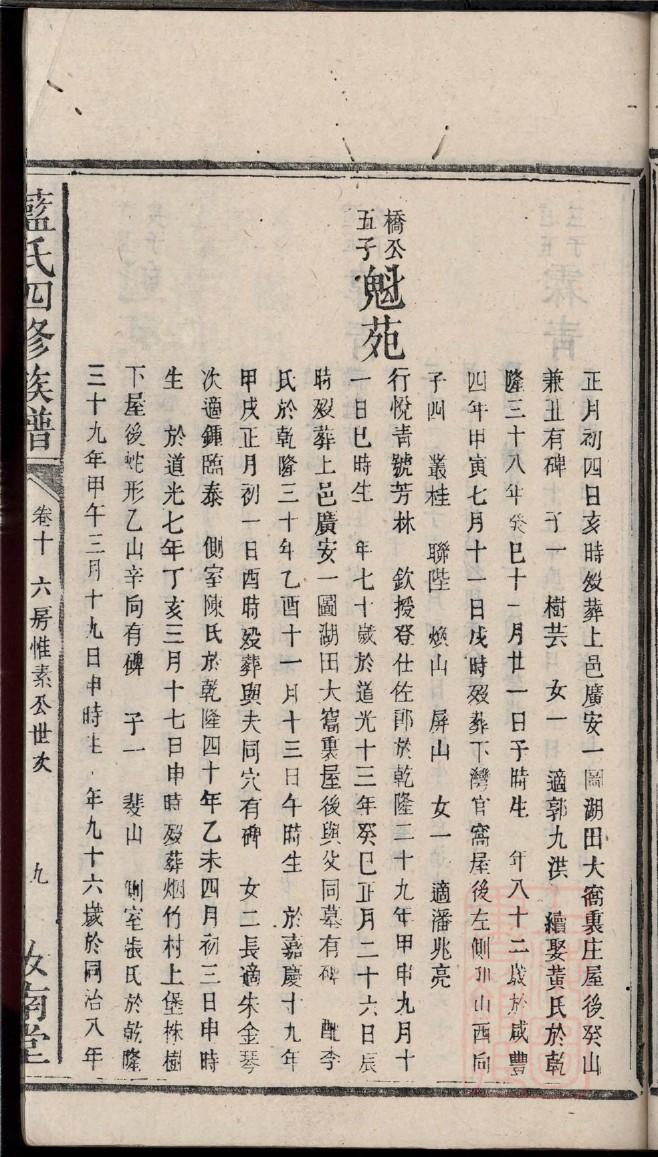 正月初四日亥時歿葬上邑廣安一圖湖田大窩裏庄屋後癸山
兼丑有碑 子一 樹芸 女一 適郭九洪 續娶黃氏於乾
隆三十八年癸巳十一月廿一日子時生 年八十二歲於咸豐
四年甲寅七月十一日戌時歿葬下灣官窩屋後左側卯山酉向
子四 叢桂 聯陛 煥山 屏山 女一 適潘兆亮
橋公五子 魁苑
行悅青號芳林 欽授登仕佐郎於乾隆二十九年甲申九月十
一日巳時生 年七十歲於道光十三年癸巳正月二十六日辰
時歿葬上邑廣安一圖湖田大窩裏屋後與父同墓有碑 配李
氏於乾隆三十年乙酉十一月十三日午時生 於嘉慶十九年
甲戌正月初一日酉時歿葬與夫同穴有碑 女二長適朱金琴
次適鍾臨泰 側室陳氏於乾隆四十年乙未四月初三日申時
生 於道光七年丁亥三月十七日申時歿葬烟竹村上堡株樹
下屋後蛇形乙山辛向有碑 子一 斐山 側室張氏於乾隆
三十九年甲午三月十九日申時生 年九十六歲於同治八年
藍氏四修族譜 卷十 六房惟素公世次 九 汝南堂